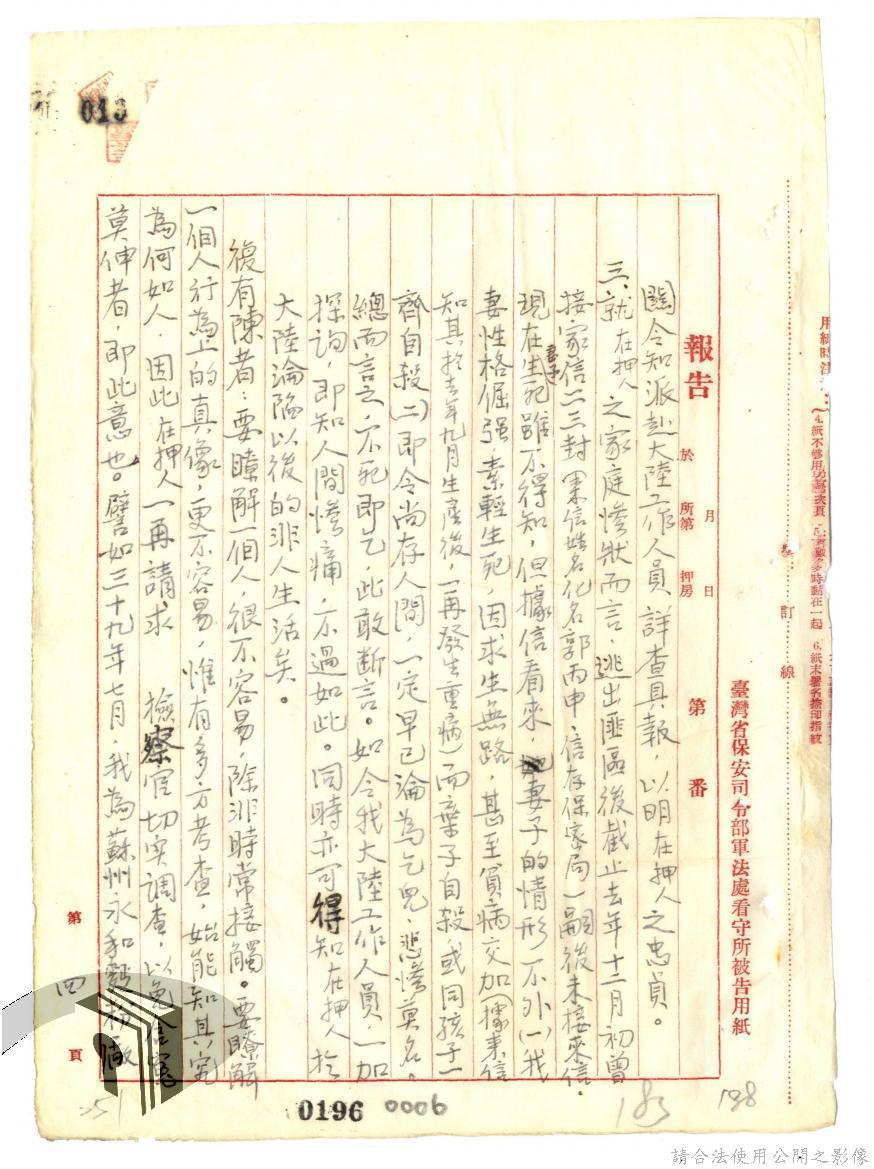 013
用紙時注
4.紙不够用另寫次頁
時黏在一起
6.紙末署名捺印指紋
訂
線
臺灣省保安司令部軍法處看守所被告用紙
報告
於
月
日
所第
押房
第
番
關令知派赴大陸工作人員詳查具報,以明在押人之忠貞。
三、就在押人之家庭慘狀而言,逃出匪區後截止去年十二月初曾
接家信二三封(來信姓名化名郭丙申,信存保密局)嗣後未接來信,
現在生死雖不得知,但據信看來,妻子的情形不外(一)我
妻性格倔强,素輕生死,因求生無路,甚至貧病交加(據來信
知其於去年九月生產後,一再發生重病)而棄子自殺,或同孩子一
齊自殺(二)即令尚存人間,一定早已淪為乞兒,悲慘莫名。
總而言之,不死即乞,此敢斷言。如令我大陸工作人員,一加
探詢,即知人間慘痛,不過如此。同時亦可得知在押人於
大陸淪陷以後的非人生活矣。
復有陳者:要瞭解一個人,很不容易,除非時常接觸。要瞭解
一個人行為上的真像,更不容易,惟有多方考查,始能知其究
為何如人,因此在押人一再請求 檢察官切實調查,以免含冤
莫伸者,即此意也。譬如三十九年七月,我為蘇州永和麵粉廠
第
四
頁
251
0196
0006
183
198
請合法使用公開之影像